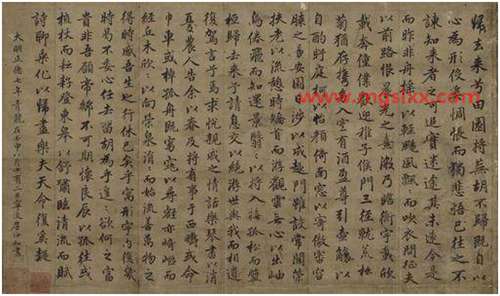 歸去來兮田園將蕪胡不歸既自以
心為形役奚惆悵而獨悲悟已往之不
諫知來者之可追實迷途其未遠覺今是
而昨非舟搖搖以輕颺風飄飄而吹衣問征夫
以前路恨晨光之熹微乃瞻衡宇載欣
載奔僮僕歡迎稚子候門三徑就荒松
菊猶存攜幼入室有酒盈尊引壺觴以
自酌眄庭柯以怡顏倚南窗以寄傲審容
膝之易安園日涉以成趣門雖設而常關策
扶老以流憩時矯首而遊觀雲無心以出岫
鳥倦飛而知還景翳翳以將入撫孤松而盤
桓歸去來兮請息交以絕游世與我而相遺
復駕言兮焉求悅親戚之情話樂琴書以消
憂農人告余以春及將有事于西疇或命
巾車或棹孤舟既窈窕以尋壑亦崎嶇而
經丘木欣欣以向榮泉涓涓而始流善萬物之
得時感吾生之行休已矣乎寓形宇內復幾
時曷不委心任去留胡為乎遑遑欲何之富
貴非吾願帝鄉不可期懷良辰以孤往或
植杖而耘耔登東皋以舒嘯臨清流而賦
詩聊乘化以歸盡樂夫天命復奚疑
大明正德七年青龍在壬申八月
www.mgslxx.com